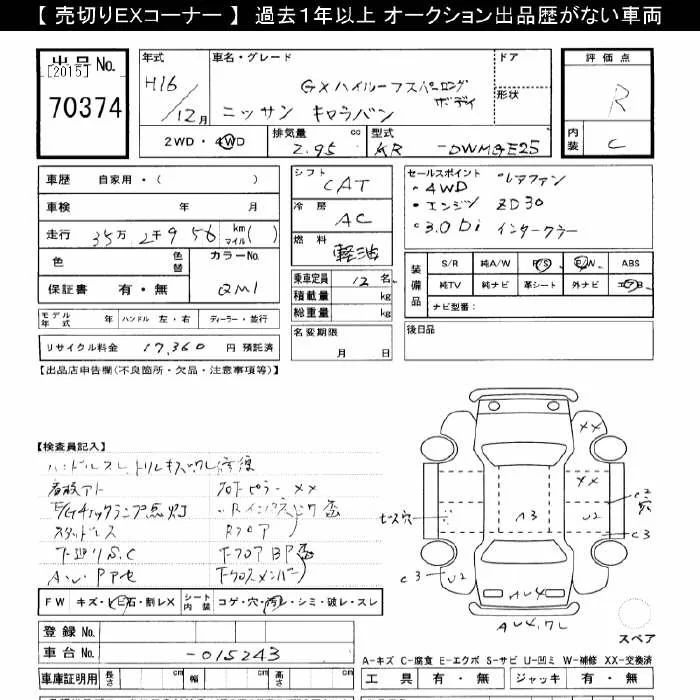 【 売切りEXコーナー 】 過去１年以上 オークション出品歴がない車両
出品No.
[2015]
70374
年式
H16/12月
車名・グレード
GXハイルーフスーパーロングボディ
ニッサン キャラバン
ドア
形状
評価点
R
内装
C
2WD・4WD
排気量 cc
2.95
型式
KR-DWMGE25
車歴 自家用・( )
車検 年 月
走行 35万2千956 km マイル( )
色 色替
カラーNo.
QM1
保証書 有・無
モデル年式 年 ハンドル 左・右 ディーラー・並行
リサイクル料金 17,360 円 預託済
シフト
CAT
冷房
AC
燃料
軽油
乗車定員 12 名
積載量 kg
総重量 kg
名変期限
月 日
セールスポイント
・4WD
・エンジン ZD30
・3.0Di インタークーラー
・レアファン
装備品
S/R 純A/W P/S P/W ABS
純TV 純ナビ 革シート 外ナビ エアB
ナビ型章:
後日品
【出品店申告欄(不良箇所・欠品・注意事項等)】
【検査員記入】
ハンドルスレ
スタッドレス
下廻りS.C
Rフロア
FW キズ・ヒビ・石・割レX
シート内装 コゲ・穴・汚レ・シミ・破レ・スレ
登録No.
車台No. -015243
車庫証明用 長さ cm 幅 cm 高さ cm
××
××
C2
穴
U2
C3
A3
ビス穴
C3
U2
AU4
AU4.ワレ
スペア
A-キズ C-腐食 E-エクボ S-サビ U-凹ミ W-補修 XX-交換済
工具 有・無 ジャッキ 有・無